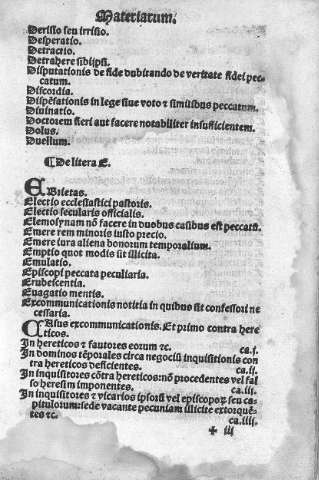 Materiarum.
Derisio seu irrisio.
Desperatio.
Detractio.
Detrahere sibiipsi.
Disputationis de fide dubitando de veritate fidei pec-
catum.
Discordia.
Dispēsationis in lege siue voto & similibus peccatum.
Diuinatio.
Doctorem fieri aut facere notabiliter insufficientem.
Dolus.
Duellum.
¶ De litera E.
EBrietas.
Electio ecclesiastici pastoris.
Electio secularis officialis.
Elemosynam nō facere in duobus casibus est peccatū.
Emere rem minoris iusto precio.
Emere iura aliena bonorum temporalium.
Emptio quot modis sit illicita.
Emulatio.
Episcopi peccata peculiaria.
Erubescentia.
Euagatio mentis.
Excommunicationis notitia in quibus sit confessori ne
cessaria.
CAsus excommunicationis. Et primo contra here
ticos.
In hereticos & fautores eorum &c. ca.i.
In dominos tēporales circa negociū inquisitionis con
tra hereticos deficientes. ca.ii.
In inquisitores cōtra hereticos: nō procedentes vel fal
so heresim imponentes. ca.iii.
In inquisitores & vicarios ipsorū vel episcoporū seu ca-
pitulorum: sede vacante pecuniam illicite extorquē-
tes &c. ca.iiii.
✠ iii